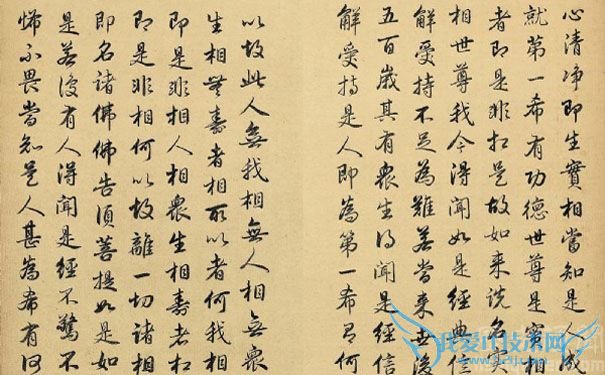 心清净即生實相當知是人成
就第一希有功德世尊是實相
者即是非相是故如来说名實
相世尊我今得聞如是經典信
解受持不足為難若當来世後
五百歲其有衆生得聞是經信
解受持是人即為第一希有何
以故此人無我相無人相無衆
生相無壽者相所以者何我相
即是非相人相衆生相壽者相
即是非相何以故離一切諸相
即名諸佛佛告須菩提如是如
是若復有人得聞是經不驚不
怖不畏當知是人甚為希有何
我爱IT技术网